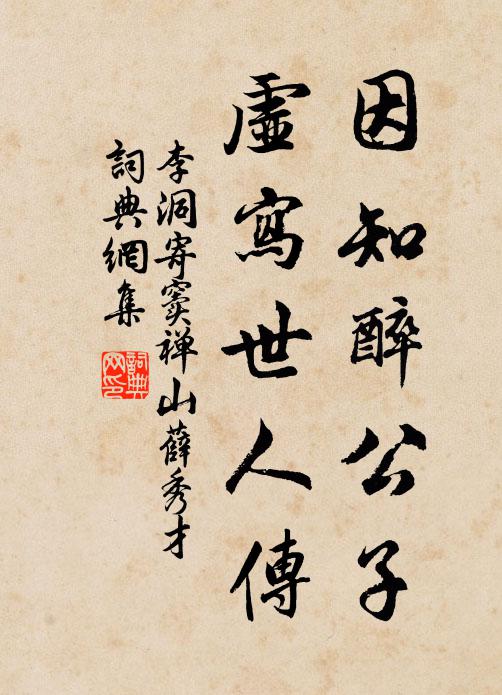 因知醉公子
虛寫世人傳
李洞寄窦禅山薛秀才
詞典網集
詞典網印